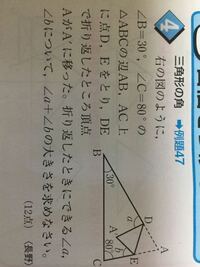 4 三角形の角 ➡例題47
右の図のように,
∠B=30°, ∠C=80°の
△ABCの辺AB, AC上
に点D, Eをとり, DE
で折り返したところ頂点
AがA′に移った。折り返したときにできる∠a,
∠bについて, ∠a+∠bの大きさを求めなさい。
(12点) (長野)
A
D
E
a
b
A′
B
30°
80°
C